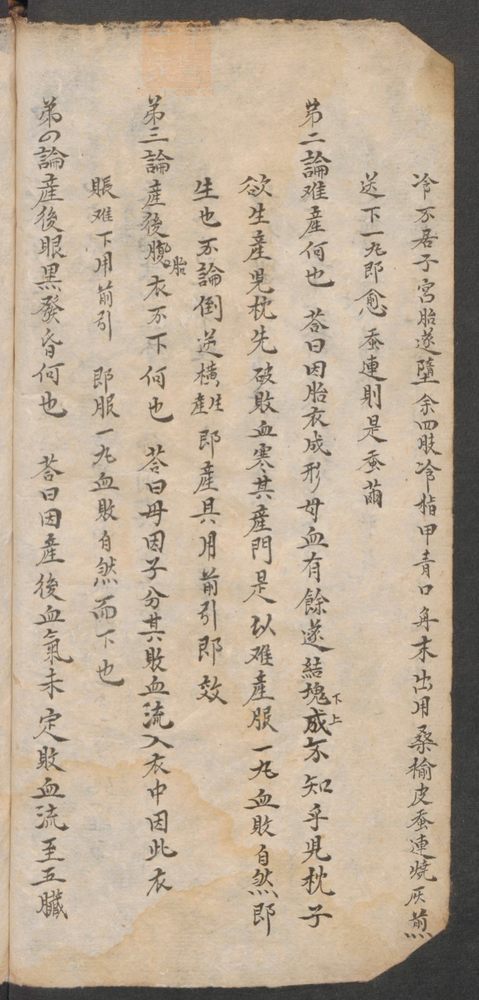 冷不居子宮胎遂墮余四肢冷指甲青口舟末出用桑榆皮蚕連燒灰煎
送下一丸即愈蚕連則是蚕繭
苐二論难產何也 荅曰因胎衣成形母血有餘遂結塊成下上不知乎児枕子
欲生產児枕先破敗血寒其產門是以难產服一丸血敗自然即
生也不論倒逆橫生產即產具用前引即效
苐三論產後胞胎衣不下何也 荅曰母因子分其敗血流入衣中因此衣
賬难下用前引 即服一丸血敗自然而下也
苐四論產後眼黑發昏何也 荅曰因產後血氣未定敗血流至五臟